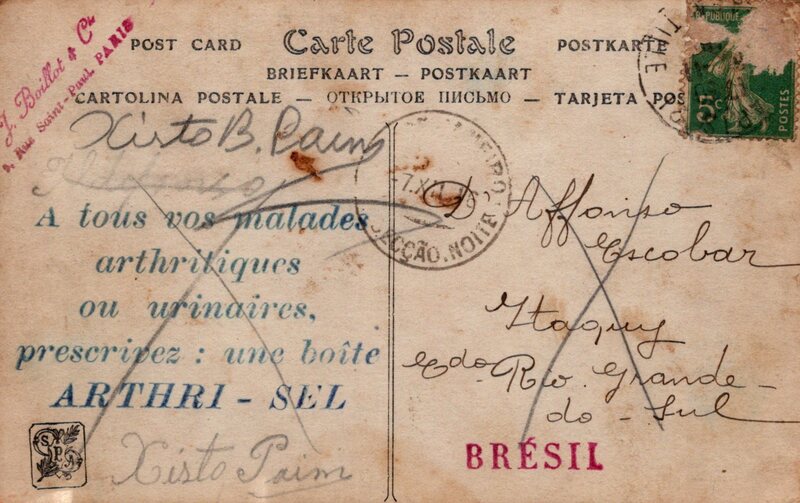 J. Boillot & Cie
5, Rue Saint-Paul, PARIS
POST CARD Carte Postale POSTKARTE
BRIEFKAART — POSTKAART
CARTOLINA POSTALE — ОТКРЫТОЕ ПИСЬМО — TARJETA POS
RÉPUBLIQUE
5c
POSTES
Xisto B. Paim
A tous vos malades
arthritiques
ou urinaires,
prescrivez : une boîte
ARTHRI - SEL
Xisto Paim
S.P.A.
NEIRO
7.XII
SECÇÃO.NOITE
Dr Affonso
Escobar
Itaquy
Edo Rio Grande-
do-Sul
BRÉSIL